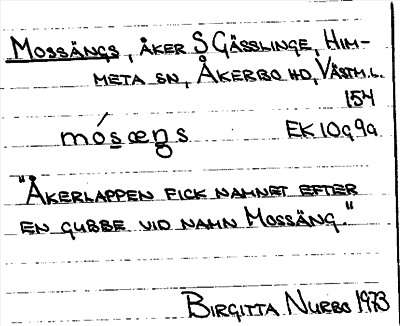 MOSSÄNGS, ÅKER S GÄSSLINGE, HIM-
META SN, ÅKERBO HD, VÄSTM. L.
154
mósæŋs EK 10g 9a
"ÅKERLAPPEN FICK NAMNET EFTER
EN GUBBE VID NAMN MOSSÄNG."
BIRGITTA NURBO 1973